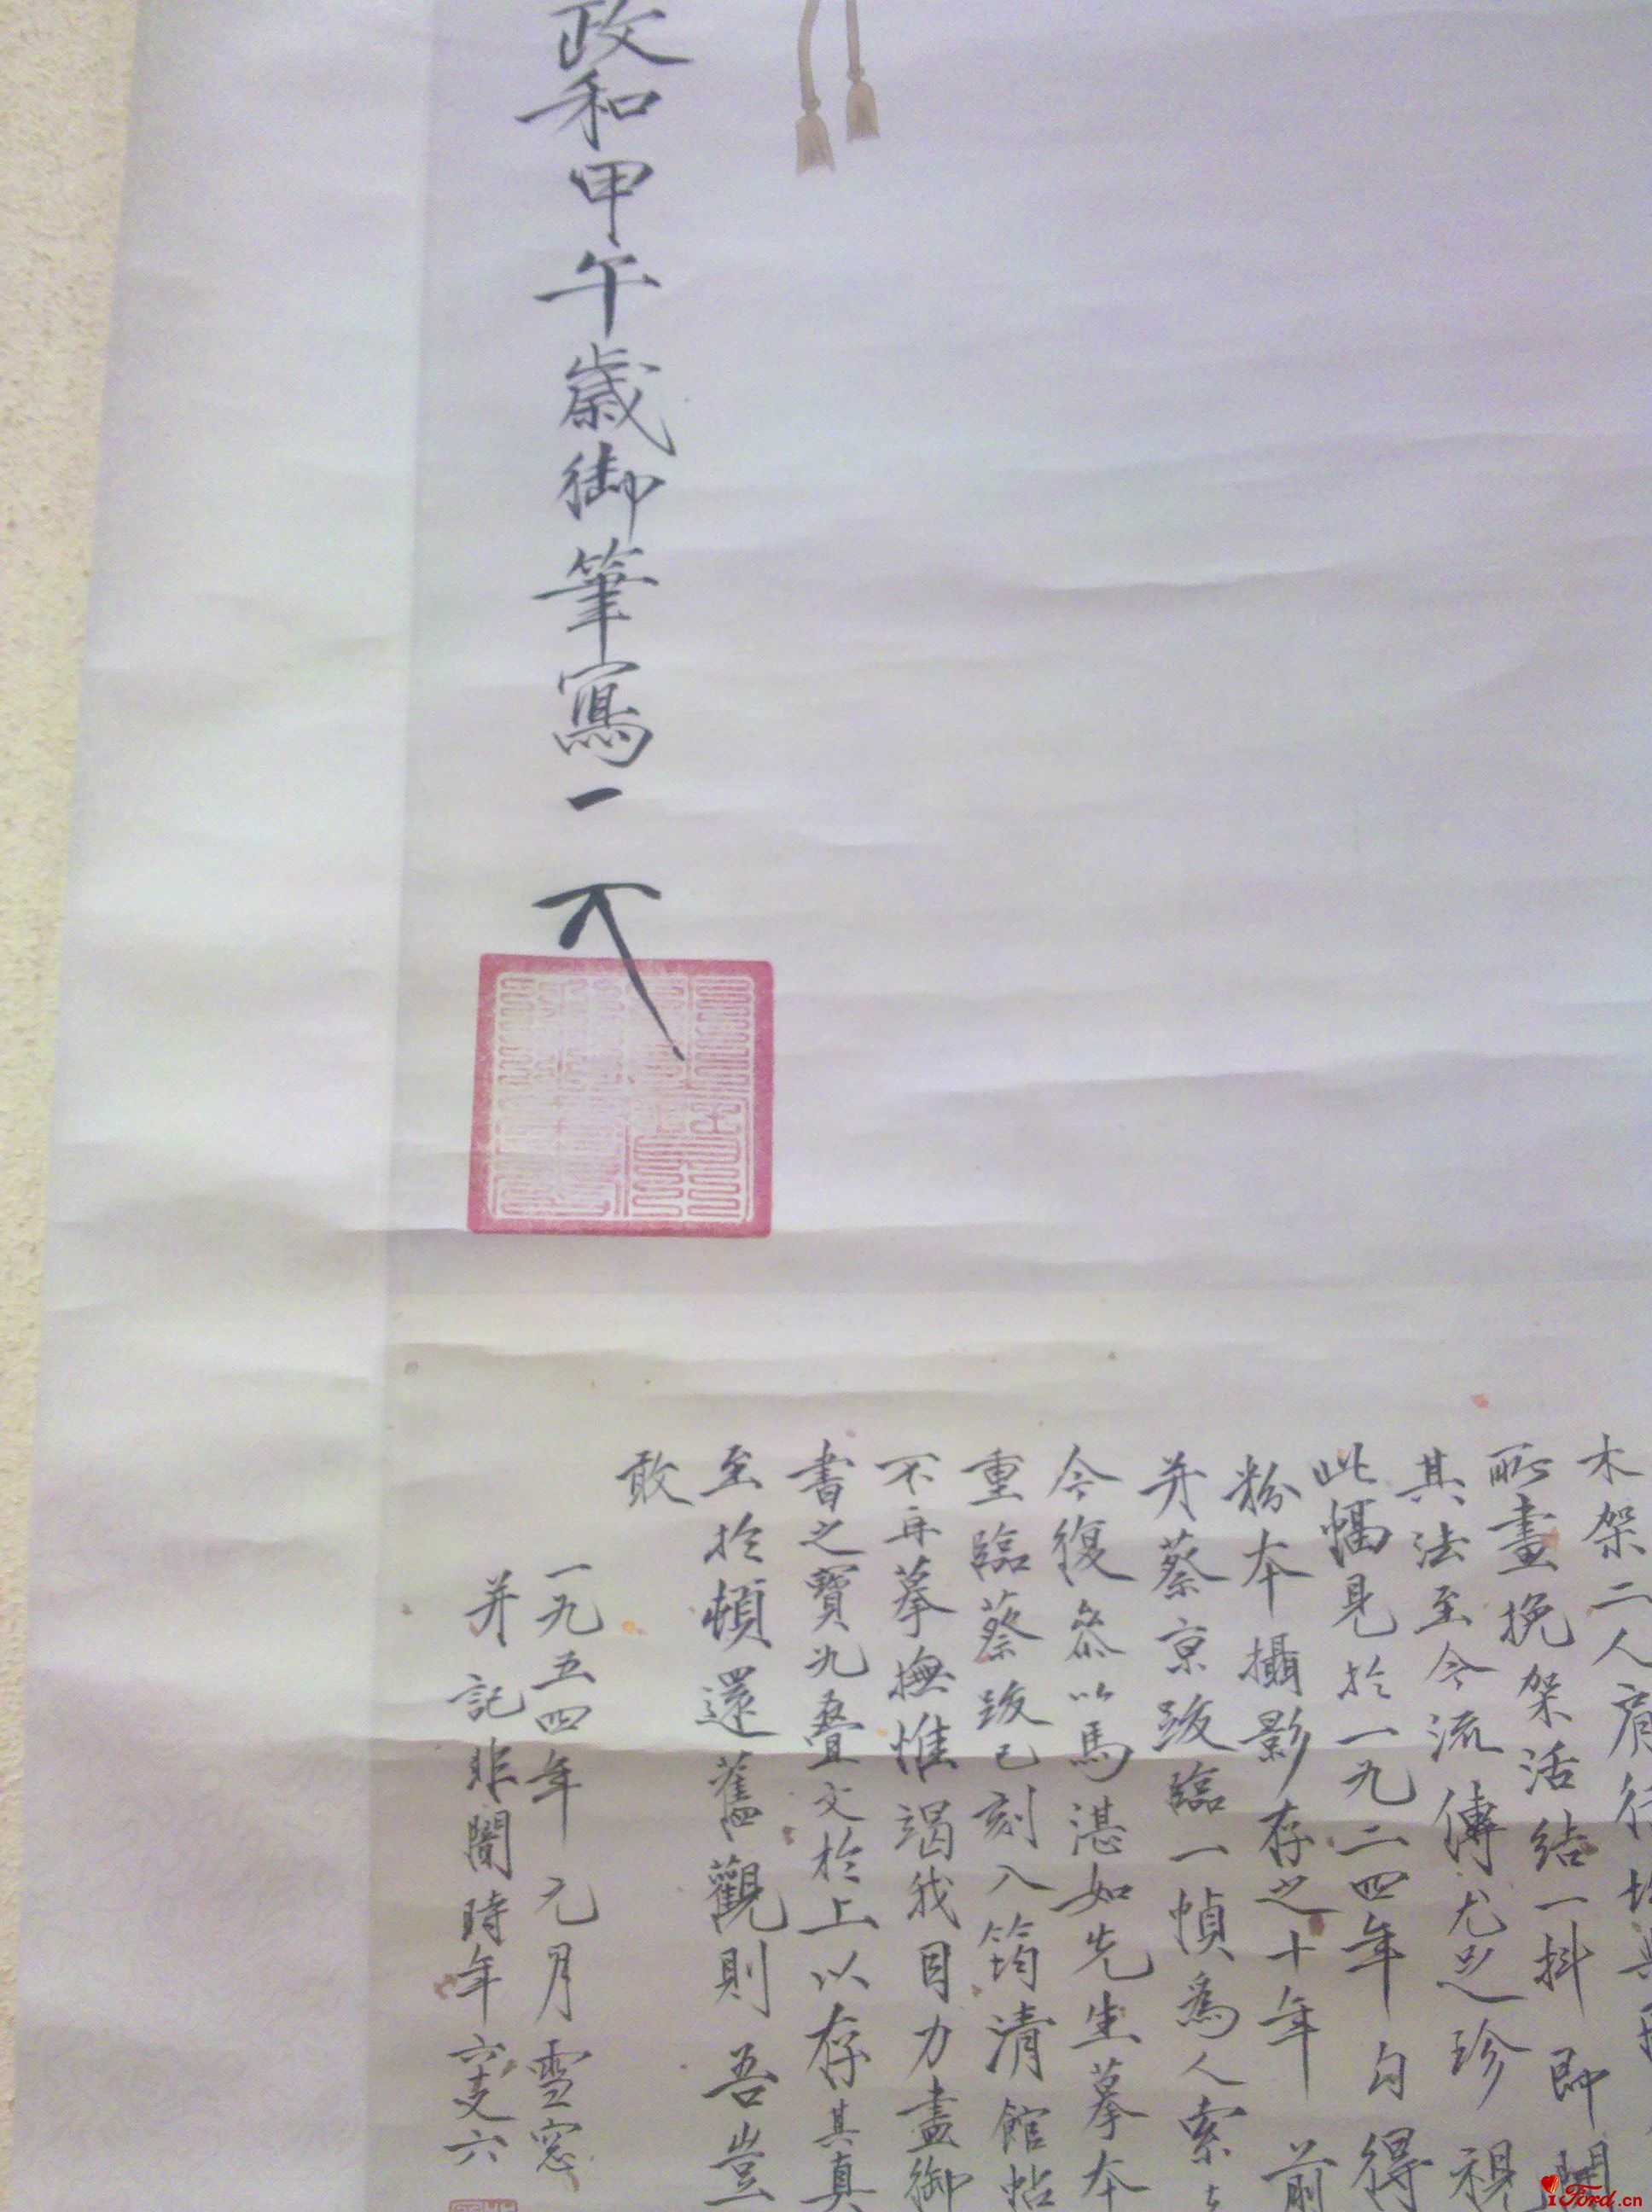 政和甲午歲御筆寫一
木架二人肩行
所畫挽架活結一抖即開
其法至今流傳尤足珍視
此幅見於一九二四年勾得
粉本攝影存之十年前
并蔡京跋臨一幀為人索
今復參以馬湛如先生摹本
重臨蔡跋已刻入筠清館帖
不再摹撫惟竭我目力畫御
書之寶九叠文於上以存其真
至於頓還舊觀則吾豈
敢
一九五四年元月雪窓
并記非闇時年六十六
iFord.cn